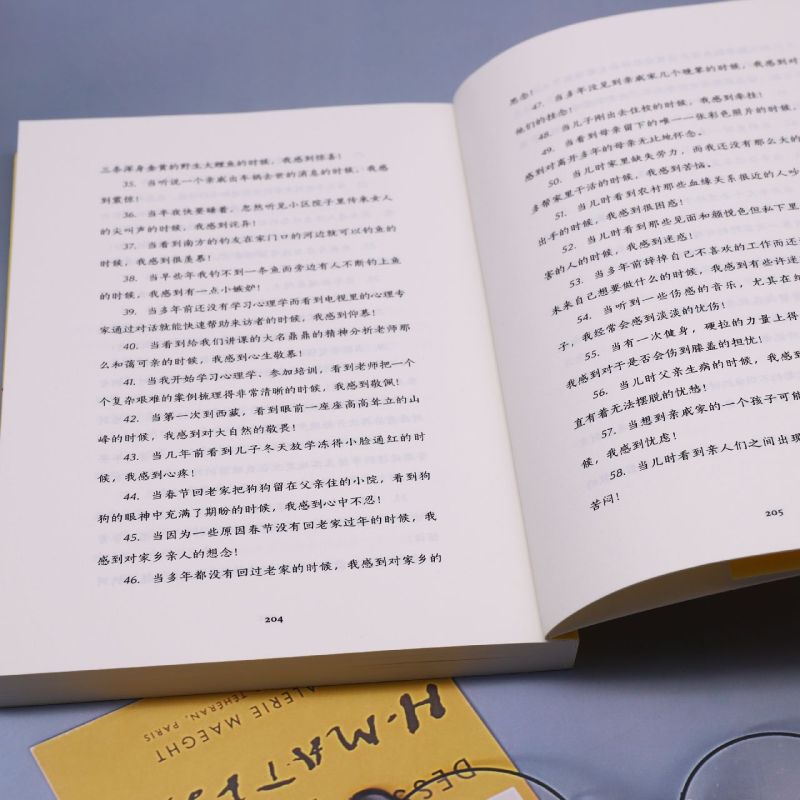 三条浑身金黄的野生大鲤鱼的时候，我感到惊喜！
35. 当听说一个亲戚出车祸去世的消息的时候，我感
到震惊！
36. 当半夜快要睡着，忽然听见小区院子里传来女人
的尖叫声的时候，我感到诧异！
37. 当看到南方的钓友在家门口的河边就可以钓鱼的
时候，我感到很羡慕！
38. 当早些年我钓不到一条鱼而旁边有人不断钓上鱼
的时候，我感到有一点小嫉妒！
39. 当多年前还没有学习心理学而看到电视里的心理专
家通过对话就能快速帮助来访者的时候，我感到仰慕！
40. 当看到给我们讲课的大名鼎鼎的精神分析老师那
么和蔼可亲的时候，我感到心生敬慕！
41. 当我开始学习心理学、参加培训，看到老师把一个
个复杂艰难的案例梳理得非常清晰的时候，我感到敬佩！
42. 当第一次到西藏，看到眼前一座座高高耸立的山
峰的时候，我感到对大自然的敬畏！
43. 当几年前看到儿子冬天放学冻得小脸通红的时
候，我感到心疼！
44. 当春节回老家把狗狗留在父亲住的小院，看到狗
狗的眼神中充满了期盼的时候，我感到心中不忍！
45. 当因为一些原因春节没有回老家过年的时候，我
感到对家乡亲人的想念！
46. 当多年都没有回过老家的时候，我感到对家乡的
204
思念！
47. 当多年没见到亲戚家几个晚辈的时候，我感到对
他们的挂念！
48. 当儿子刚出去住校的时候，我感到牵挂！
49. 当看到母亲留下的唯一一张彩色照片的时候，
感到对离开多年的母亲无比地怀念。
50. 当儿时家里缺失劳力，而我还没有那么大的
多帮家里干活的时候，我感到苦恼。
51. 当儿时看到农村那些血缘关系很近的人吵
出手的时候，我感到很困惑！
52. 当儿时看到那些见面和颜悦色但私下里
害的人的时候，我感到迷惑！
53. 当多年前辞掉自己不喜欢的工作而还
未来自己想要做什么的时候，我感到有些许迷
54. 当听到一些伤感的音乐，尤其在
子，我经常会感到淡淡的忧伤！
55. 当有一次健身，硬拉的力量上得
我感到对于是否会伤到膝盖的担忧！
56. 当儿时父亲生病的时候，我感到
直有着无法摆脱的忧愁！
57. 当想到亲戚家的一个孩子可能
候，我感到忧虑！
58. 当儿时看到亲人们之间出现
苦闷！
205
ALERIE MAEGHT
TEHERAN, PARIS
H.MAT
DESS